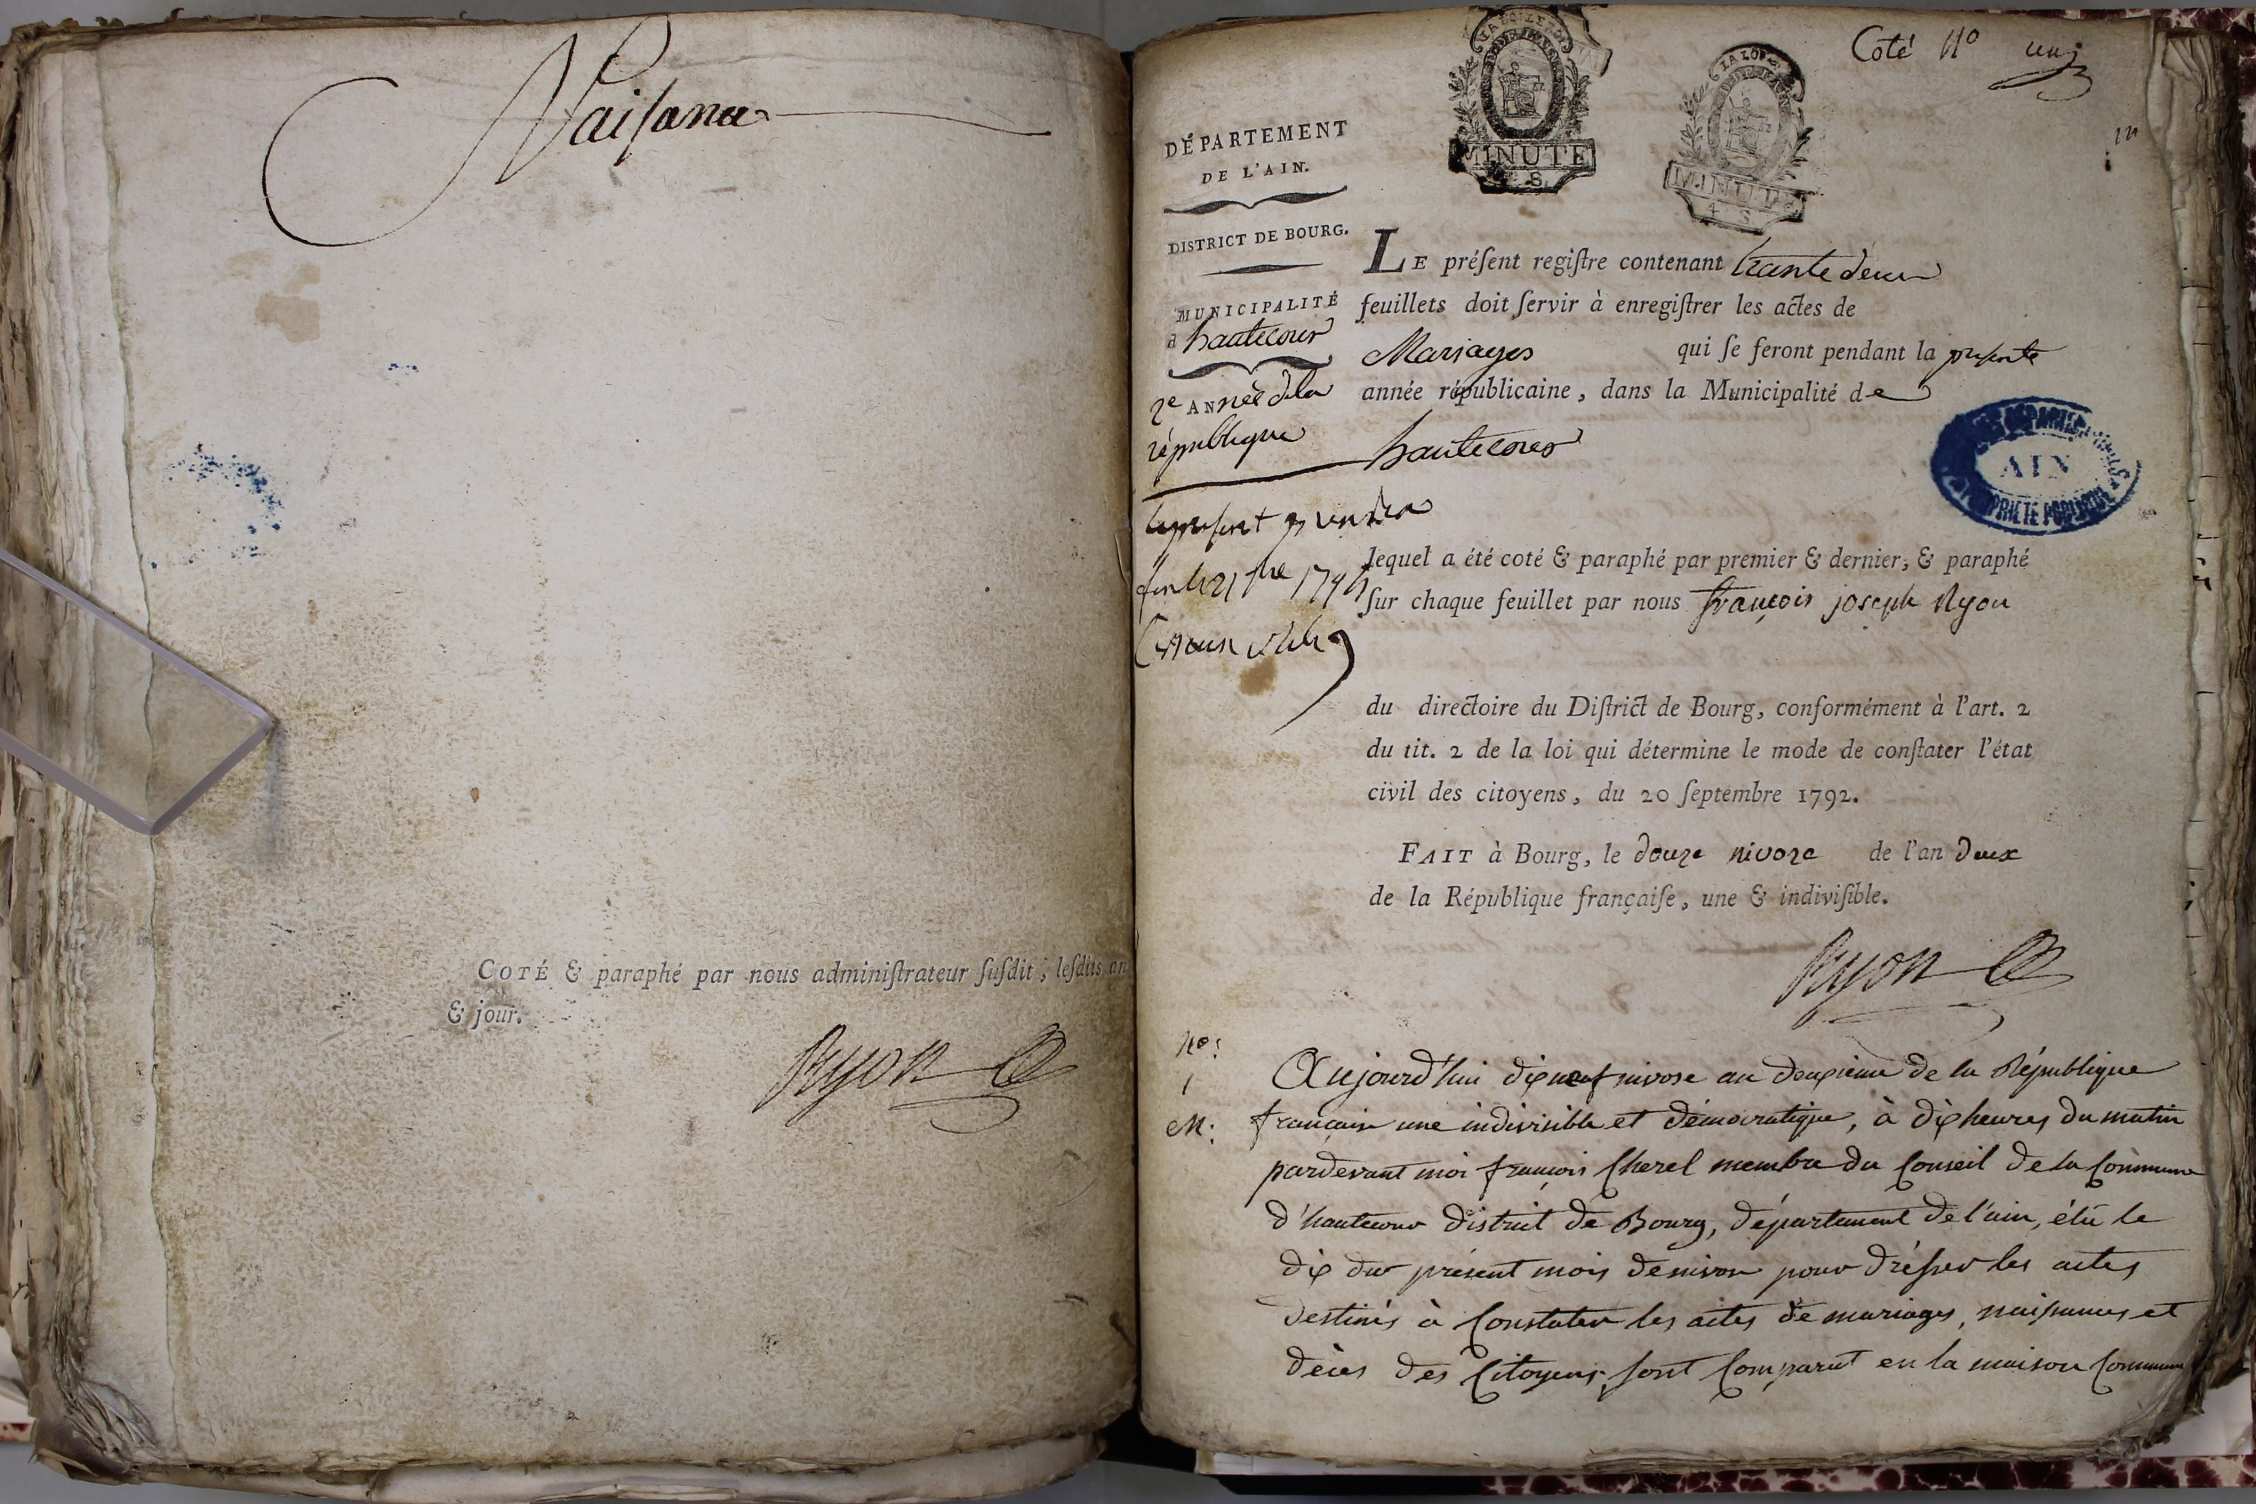 Naiſance
COTÉ & paraphé par nous adminiſtrateur ſuſdit, leſdits an
& jour.
Ryon
Coté No un
LA LOI
MINUTE
4 S.
LA LOI
MINUTE
4 S.
DÉPARTEMENT
DE L'AIN.
DISTRICT DE BOURG.
MUNICIPALITÉ
d hautecour
2e ANnée de la
république
LE préſent regiſtre contenant trante deux
feuillets doit ſervir à enregiſtrer les actes de
Mariages qui ſe feront pendant la preſente
année républicaine, dans la Municipalité de
hautecour
ARCHIVES DÉPARTEMENTALES
AIN
PROPRIÉTÉ PUBLIQUE
lequel a été coté & paraphé par premier & dernier, & paraphé
ſur chaque feuillet par nous françois joseph Ryon
du directoire du Diſtrict de Bourg, conformément à l'art. 2
du tit. 2 de la loi qui détermine le mode de conſtater l'état
civil des citoyens, du 20 ſeptembre 1792.
FAIT à Bourg, le douze nivoze de l'an deux
de la République françaiſe, une & indiviſible.
Ryon
No:
1
M:
Aujourd'hui dixneuf nivose an deuxieme de la République
françaiſe une indivisible et démocratique, à dix heures du matin
pardevant moi françois Cherel membre du Conseil de la Commune
d'hautecour district de Bourg, département de l'ain, élû le
dix du présent mois de nivose pour dréſſer les actes
destinés à Constater les actes de mariages, naiſsances et
décès des Citoyens, sont Comparut en la maison Commune